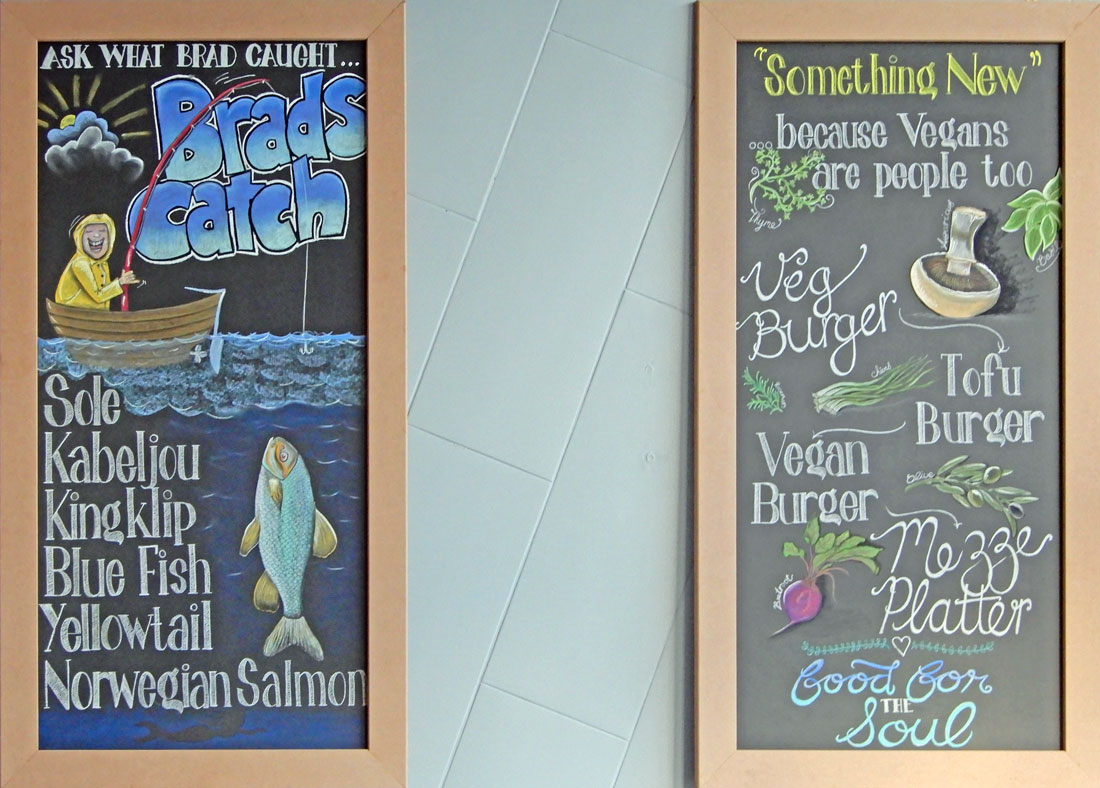 ASK WHAT BRAD CAUGHT...
Brads
catch
Sole
Kabeljou
Kingklip
Blue Fish
Yellowtail
Norwegian Salmon
"Something New"
...because Vegans
are people too
Thyme
Veg
Burger
Tofu
Burger
Vegan
Burger
Olive
Mezze
Platter
Beetroot
Good for
THE
Soul